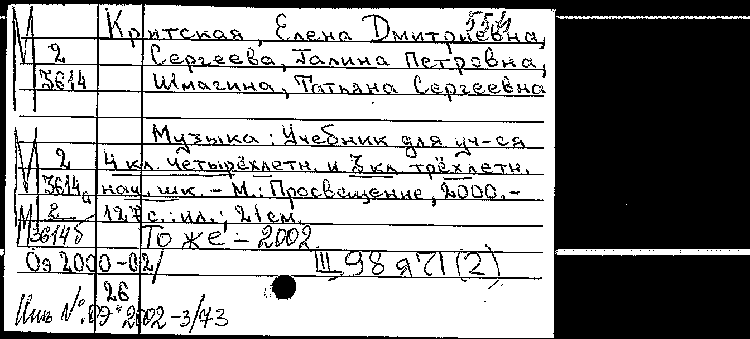 554
М Критская, Елена Дмитриевна,
2 Сергеева, Галина Петровна,
3614 Шмагина, Татьяна Сергеевна
Музыка : Учебник для уч-ся
М 2 4 кл. четырёхлетн. и 3 кл трёхлетн.
3614а нач. шк. - М.: Просвещение, 2000. -
М 2 127 с. : ил. ; 21 см.
3614б То же - 2002.
Оз 2000-02/ Щ98я71(2)
26
Инв №: 09 2002-3/73